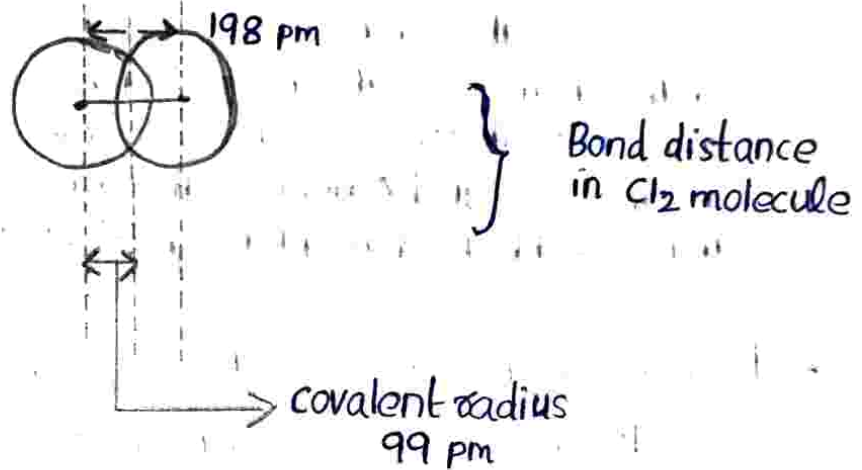 198 pm
Bond distance
in Cl₂ molecule
covalent radius
99 pm